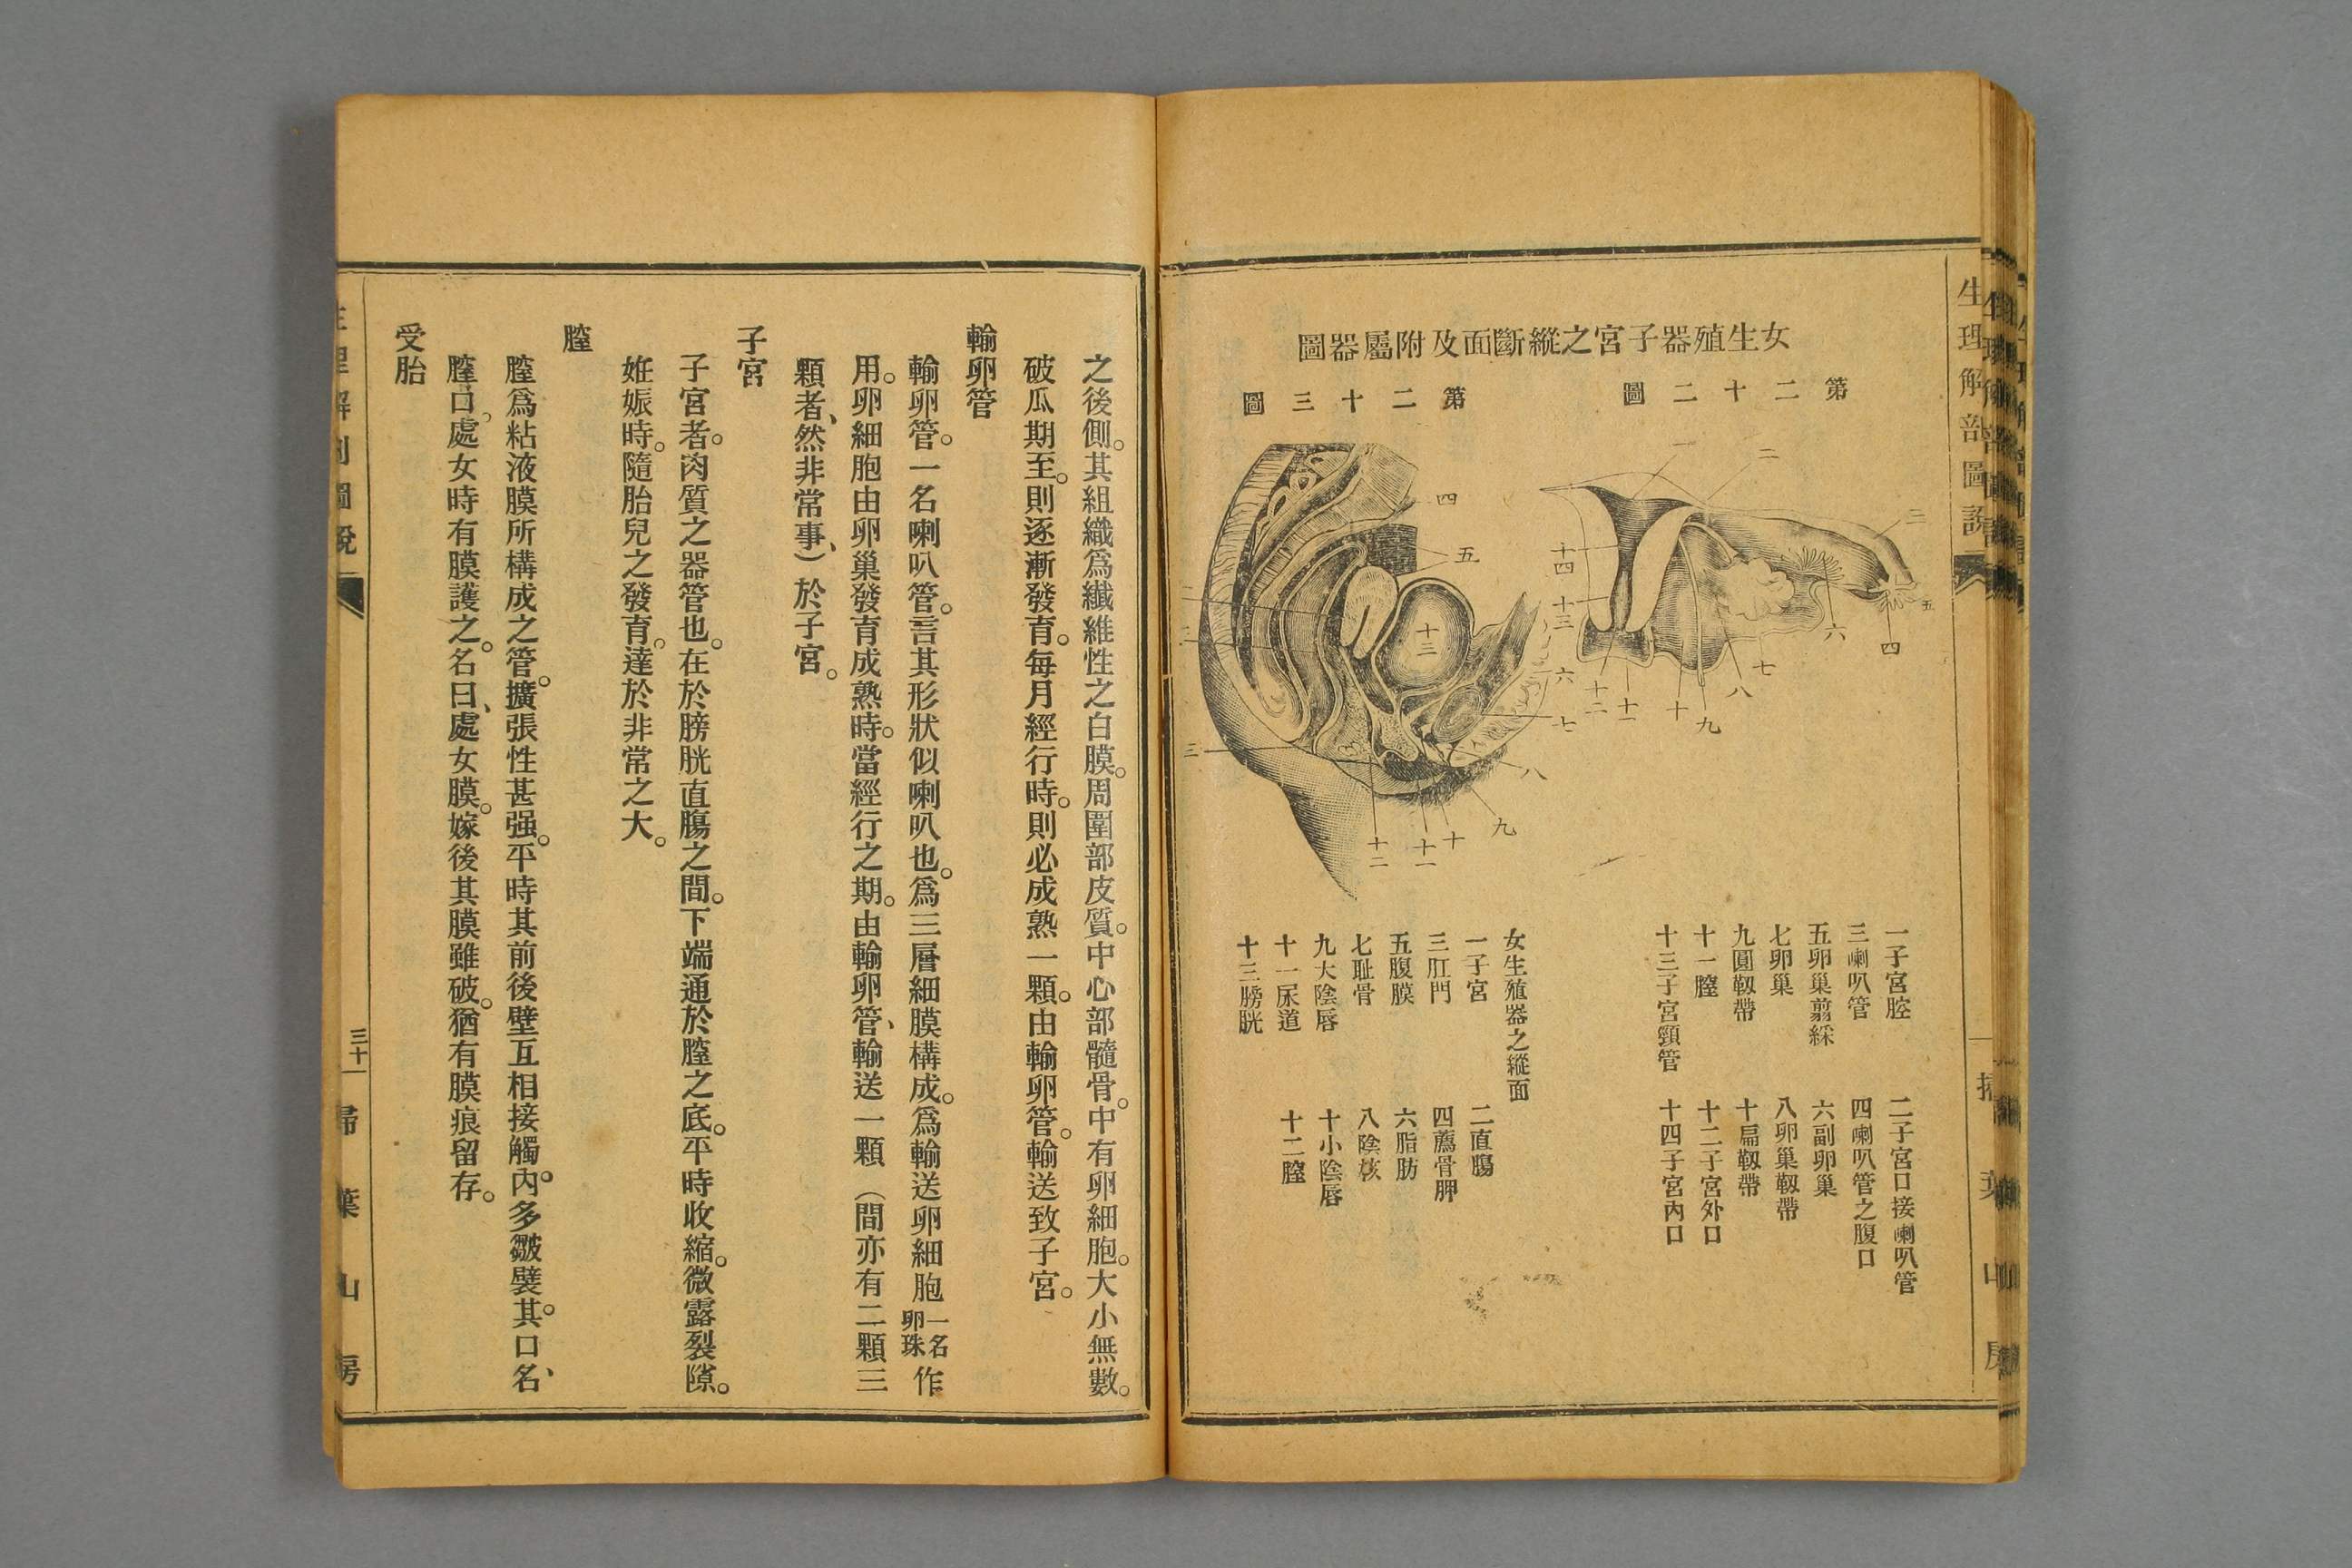 生理解剖圖說
一
掃葉山房
女生殖器子宮之縱斷面及附屬器圖
第二十二圖
一
二
三
四
五
六
七
八
九
十
十一
十二
十三
十四
一子宮腔
二子宮口接喇叭管
三喇叭管
四喇叭管之腹口
五卵巢翦綵
六副卵巢
七卵巢
八卵巢靱帶
九圓靱帶
十扁靱帶
十一膣
十二子宮外口
十三子宮頸管
十四子宮內口
第二十三圖
四
五
十三
六
七
八
九
十
十一
十二
三
女生殖器之縱面
一子宮
二直膓
三肛門
四薦骨胛
五腹膜
六脂肪
七耻骨
八陰核
九大陰唇
十小陰唇
十一尿道
十二膣
十三膀胱
之後側。其組織爲纖維性之白膜。周圍部皮質。中心部髓骨。中有卵細胞。大小無數。
破瓜期至。則逐漸發育。每月經行時。則必成熟一顆。由輸卵管。輸送致子宮。
輸卵管
輸卵管。一名喇叭管。言其形狀似喇叭也。爲三層細膜構成。爲輸送卵細胞一名卵珠作
用。卵細胞由卵巢發育成熟時。當經行之期。由輸卵管、輸送一顆（間亦有二顆三
顆者、然非常事、）於子宮。
子宮
子宮者。肉質之器管也。在於膀胱直膓之間。下端通於膣之底。平時收縮。微露裂隙。
姙娠時。隨胎兒之發育。達於非常之大。
膣
膣爲粘液膜所構成之管。擴張性甚强。平時其前後壁互相接觸。內多皺襞。其口名、
膣口。處女時有膜護之。名曰、處女膜。嫁後其膜雖破。猶有膜痕留存。
受胎
生理解剖圖說
三十一
掃葉山房